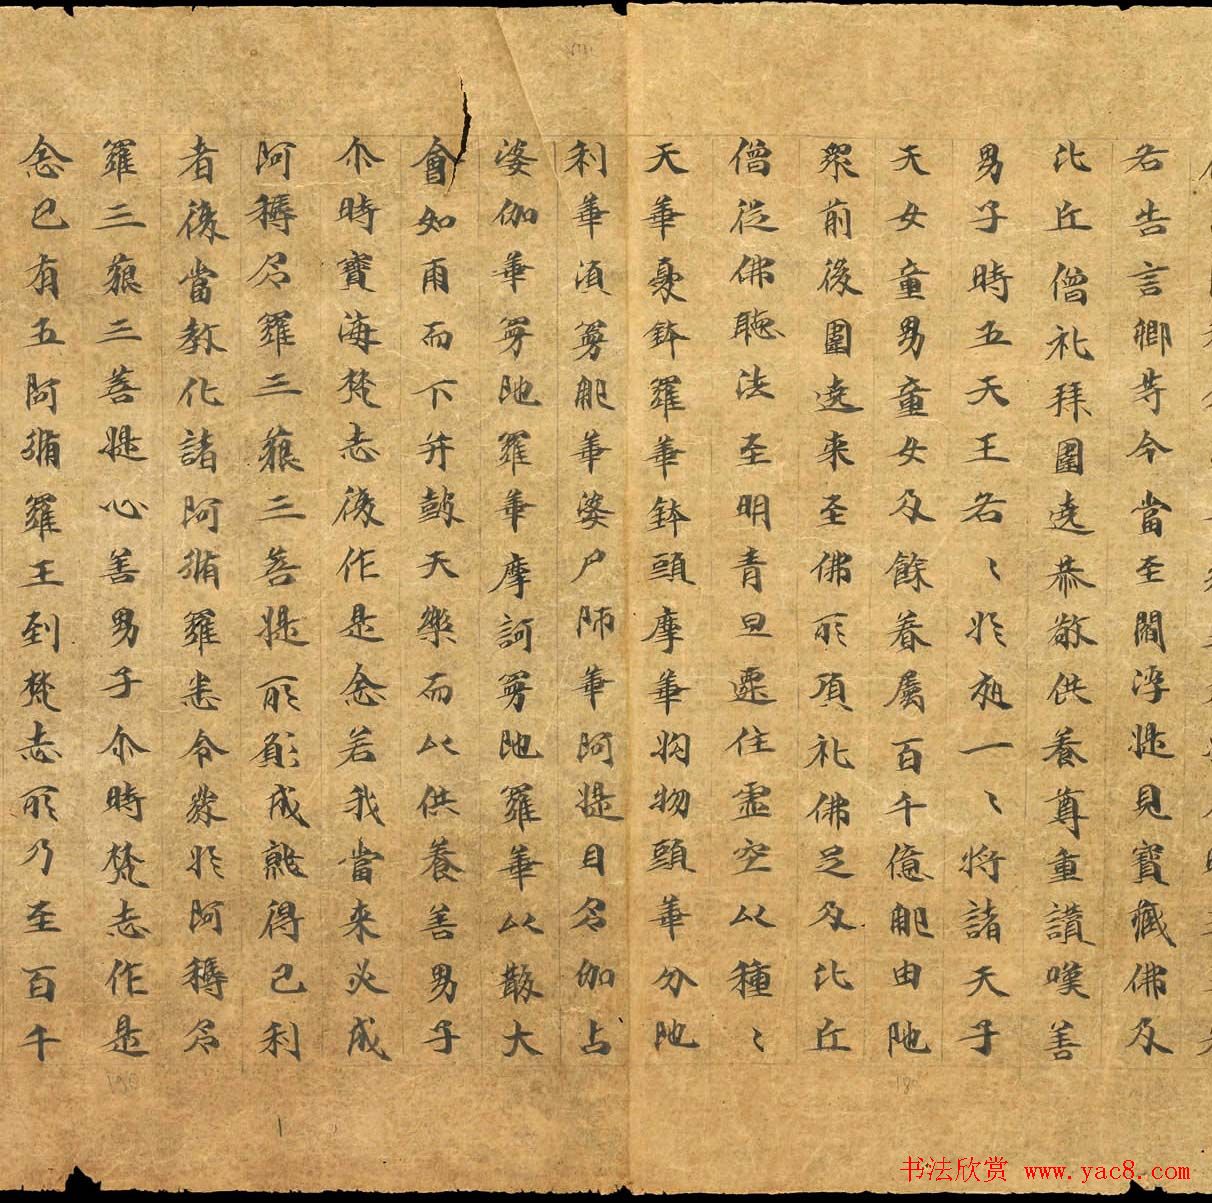 各告言卿等今當至閻浮提見寶藏佛及
比丘僧礼拜圍遶恭敬供養尊重讃嘆善
男子時五天王各〻於夜一〻將諸天子
天女童男童女及餘眷属百千億那由陁
衆前後圍遶来至佛所頂礼佛足及比丘
僧從佛聴法至明青旦還住虚空以種〻
天華憂鉢羅華鉢頭摩華拘物頭華分陁
利華湏曼那華婆尸師華阿提目多伽占
婆伽華曼陁羅華摩訶曼陁羅華以散大
會如雨而下并鼓天樂而以供養善男子
尒時寶海梵志復作是念若我當来必成
阿耨多羅三藐三菩提所願成就得已利
者復當教化諸阿脩羅悉令發於阿耨多
羅三藐三菩提心善男子尒時梵志作是
念已有五阿脩羅王到梵志所乃至百千
书法欣赏 www.yac8.com